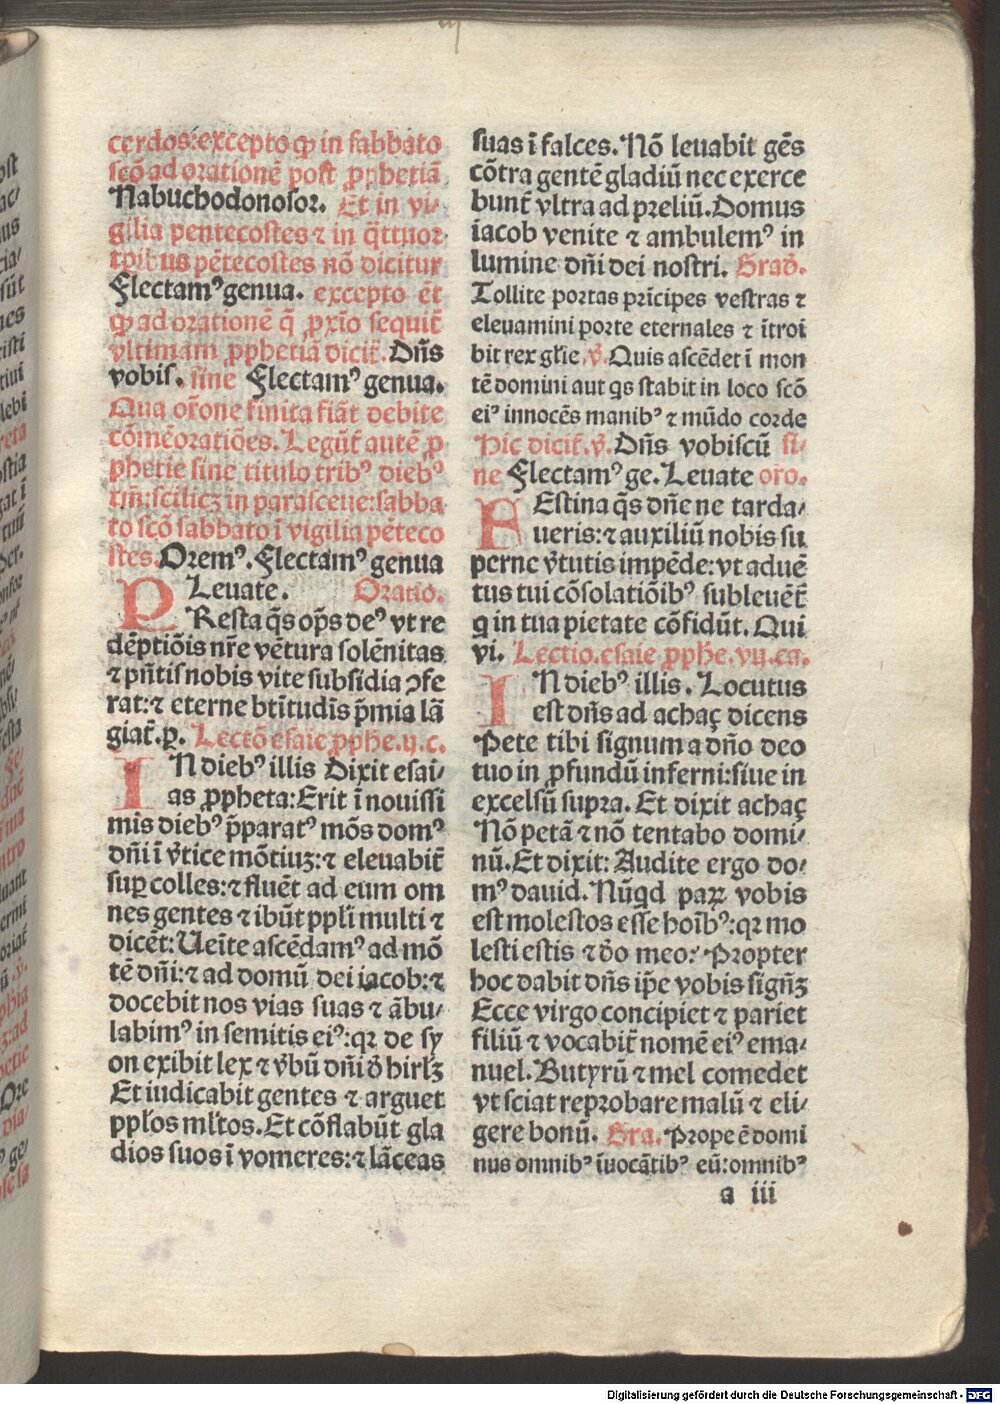 iij
cerdos: excepto ꝙ in sabbato
scō ad orationē post ꝓphetiā
Nabuchodonosor. Et in vi⸗
gilia pentecostes ⁊ in q̄ttuor
tꝑibus pētecostes nō dicitur
Flectamꝰ genua. excepto ēt
ꝙ ad orationē q̄ ꝓxīo sequit̄
vltimam ꝓphetiā dicit̄. Dn̄s
vobis. sine Flectamꝰ genua.
Qua or̄one finita fiāt debite
cōmēoratiōes. Legūt̄ autē ꝓ
phetie sine titulo tribꝰ diebꝰ
tm̄: scilicꝫ in parasceue: sabba
to scō sabbato ī vigilia pēteco
stes. Oremꝰ. Flectamꝰ genua
Leuate. Oratio.
PResta q̄s op̄s deꝰ vt re
dēptiōis nr̄e vētura solēnitas
⁊ pn̄tis nobis vite subsidia ꝯfe
rat: ⁊ eterne btītudīs p̄mia lā
giat̄. ꝑ. Lectō esaie ꝓphe. ij. c.
IN diebꝰ illis Dixit esai⸗
as ꝓpheta: Erit ī nouissi
mis diebꝰ p̄paratꝰ mōs domꝰ
dn̄i ī v̄tice mōtiuꝫ: ⁊ eleuabit̄
suꝑ colles: ⁊ fluēt ad eum om
nes gentes ⁊ ibūt ppl̄i multi ⁊
dicēt: Ueīte ascēdamꝰ ad mō
tē dn̄i: ⁊ ad domū dei iacob: ⁊
docebit nos vias suas ⁊ ābu⸗
labimꝰ in semitis eiꝰ: qꝛ de sy
on exibit lex ⁊ v̄bū dn̄i d̄ hirlꝫ
Et iudicabit gentes ⁊ arguet
ppl̄os ml̄tos. Et cōflabūt gla
dios suos ī vomeres: ⁊ lāceas
suas ī falces. Nō leuabit gēs
cōtra gentē gladiū nec exerce
bunt̄ vltra ad preliū. Domus
iacob venite ⁊ ambulemꝰ in
lumine dn̄i dei nostri. Grad̄.
Tollite portas prīcipes vestras ⁊
eleuamini porte eternales ⁊ ītroi
bit rex gl̄ie. v̄. Quis ascēdet ī mon
tē domini aut q̇s stabit in loco scō
eiꝰ innocēs manibꝰ ⁊ mūdo corde
Hic dicit̄. v̄. Dn̄s vobiscū si⸗
ne Flectamꝰ ge. Leuate oro.
FEstina q̄s dn̄e ne tarda⸗
ueris: ⁊ auxiliū nobis su
perne v̄tutis impēde: vt aduē
tus tui cōsolatiōibꝰ subleuēt̄
q̇ in tua pietate cōfidūt. Qui
vi. Lectio. esaie ꝓphe. vij. ca.
IN diebꝰ illis. Locutus
est dn̄s ad achaꝫ dicens
Pete tibi signum a dn̄o deo
tuo in ꝓfundū inferni: siue in
excelsū supra. Et dixit achaꝫ
Nō petā ⁊ nō tentabo domi⸗
nū. Et dixit: Audite ergo do⸗
mꝰ dauid. Nūq̇d parꝫ vobis
est molestos esse hoībꝰ: qꝛ mo
lesti estis ⁊ d̄o meo: Propter
hoc dabit dn̄s ip̄e vobis signꝫ
Ecce virgo concipiet ⁊ pariet
filiū ⁊ vocabit̄ nomē eiꝰ ema⸗
nuel. Butyrū ⁊ mel comedet
vt sciat reprobare malū ⁊ eli⸗
gere bonū. Gra. Prope ē domi
nus omnibꝰ īuocātibꝰ eū: omnibꝰ
a iii
Digitalisierung gefördert durch die Deutsche Forschungsgemeinschaft - DFG